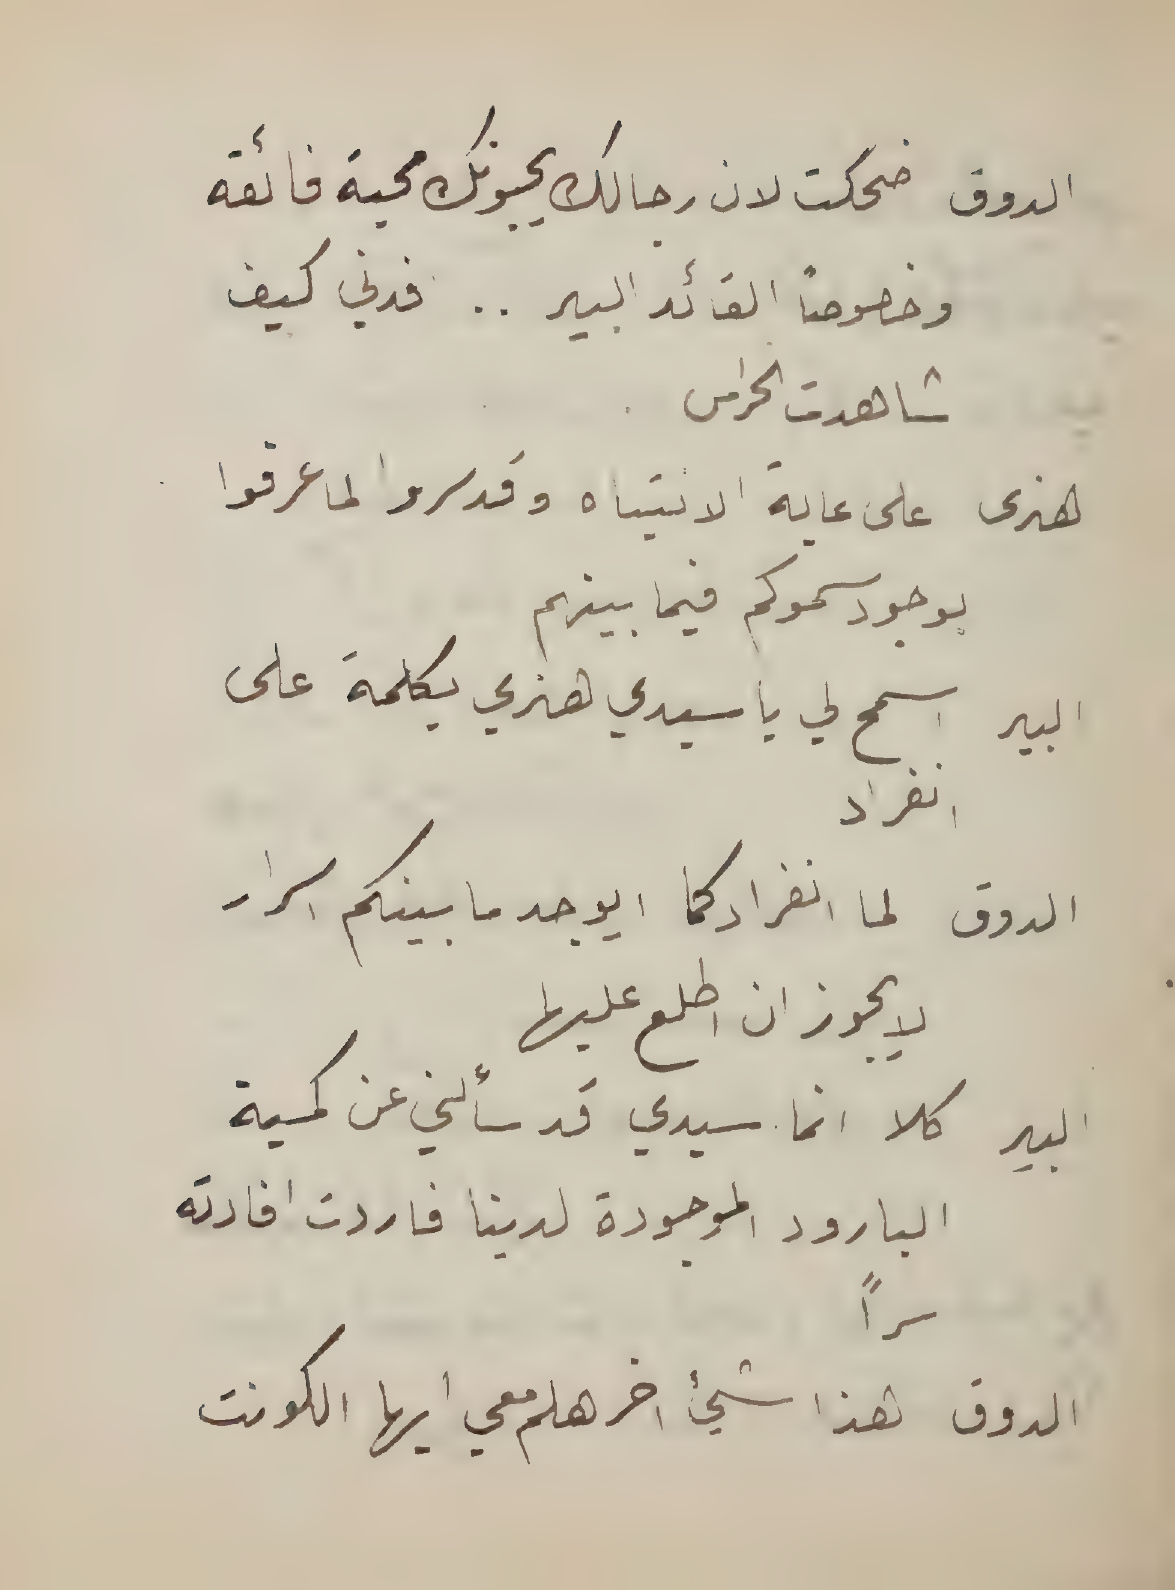 الدوق ضحكت لان رجالك يحبونك محبة فائقة
وخصوصًا القائد البير .. فدني كيف
شاهدت الحراس
هنرى على غاية الانتباه وقد سروا لما عرفوا
بوجود سموكم فيما بينهم
البير اسمح لي يا سيدي هنري بكلمة على
انفراد
الدوق لما انفرادكما ايوجد ما بينكم اسرار
لا يجوز ان اطلع عليها
البير كلا انما سيدي قد سألني عن كمية
البارود الموجودة لدينا فاردت افادته
سرًا
الدوق هذا شيئ اخر هلم معي ايها الكونت